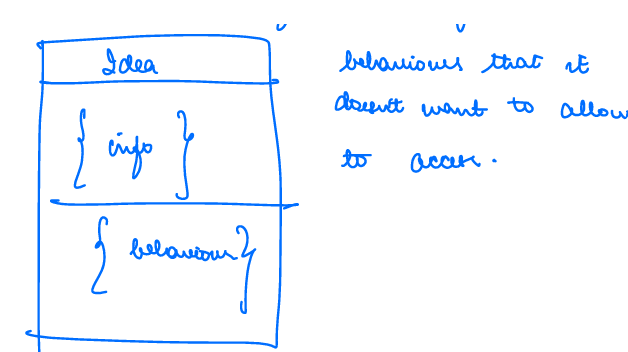 Idea
{ info }
{ behaviours }
behaviours that it
doesn't want to allow
to access.